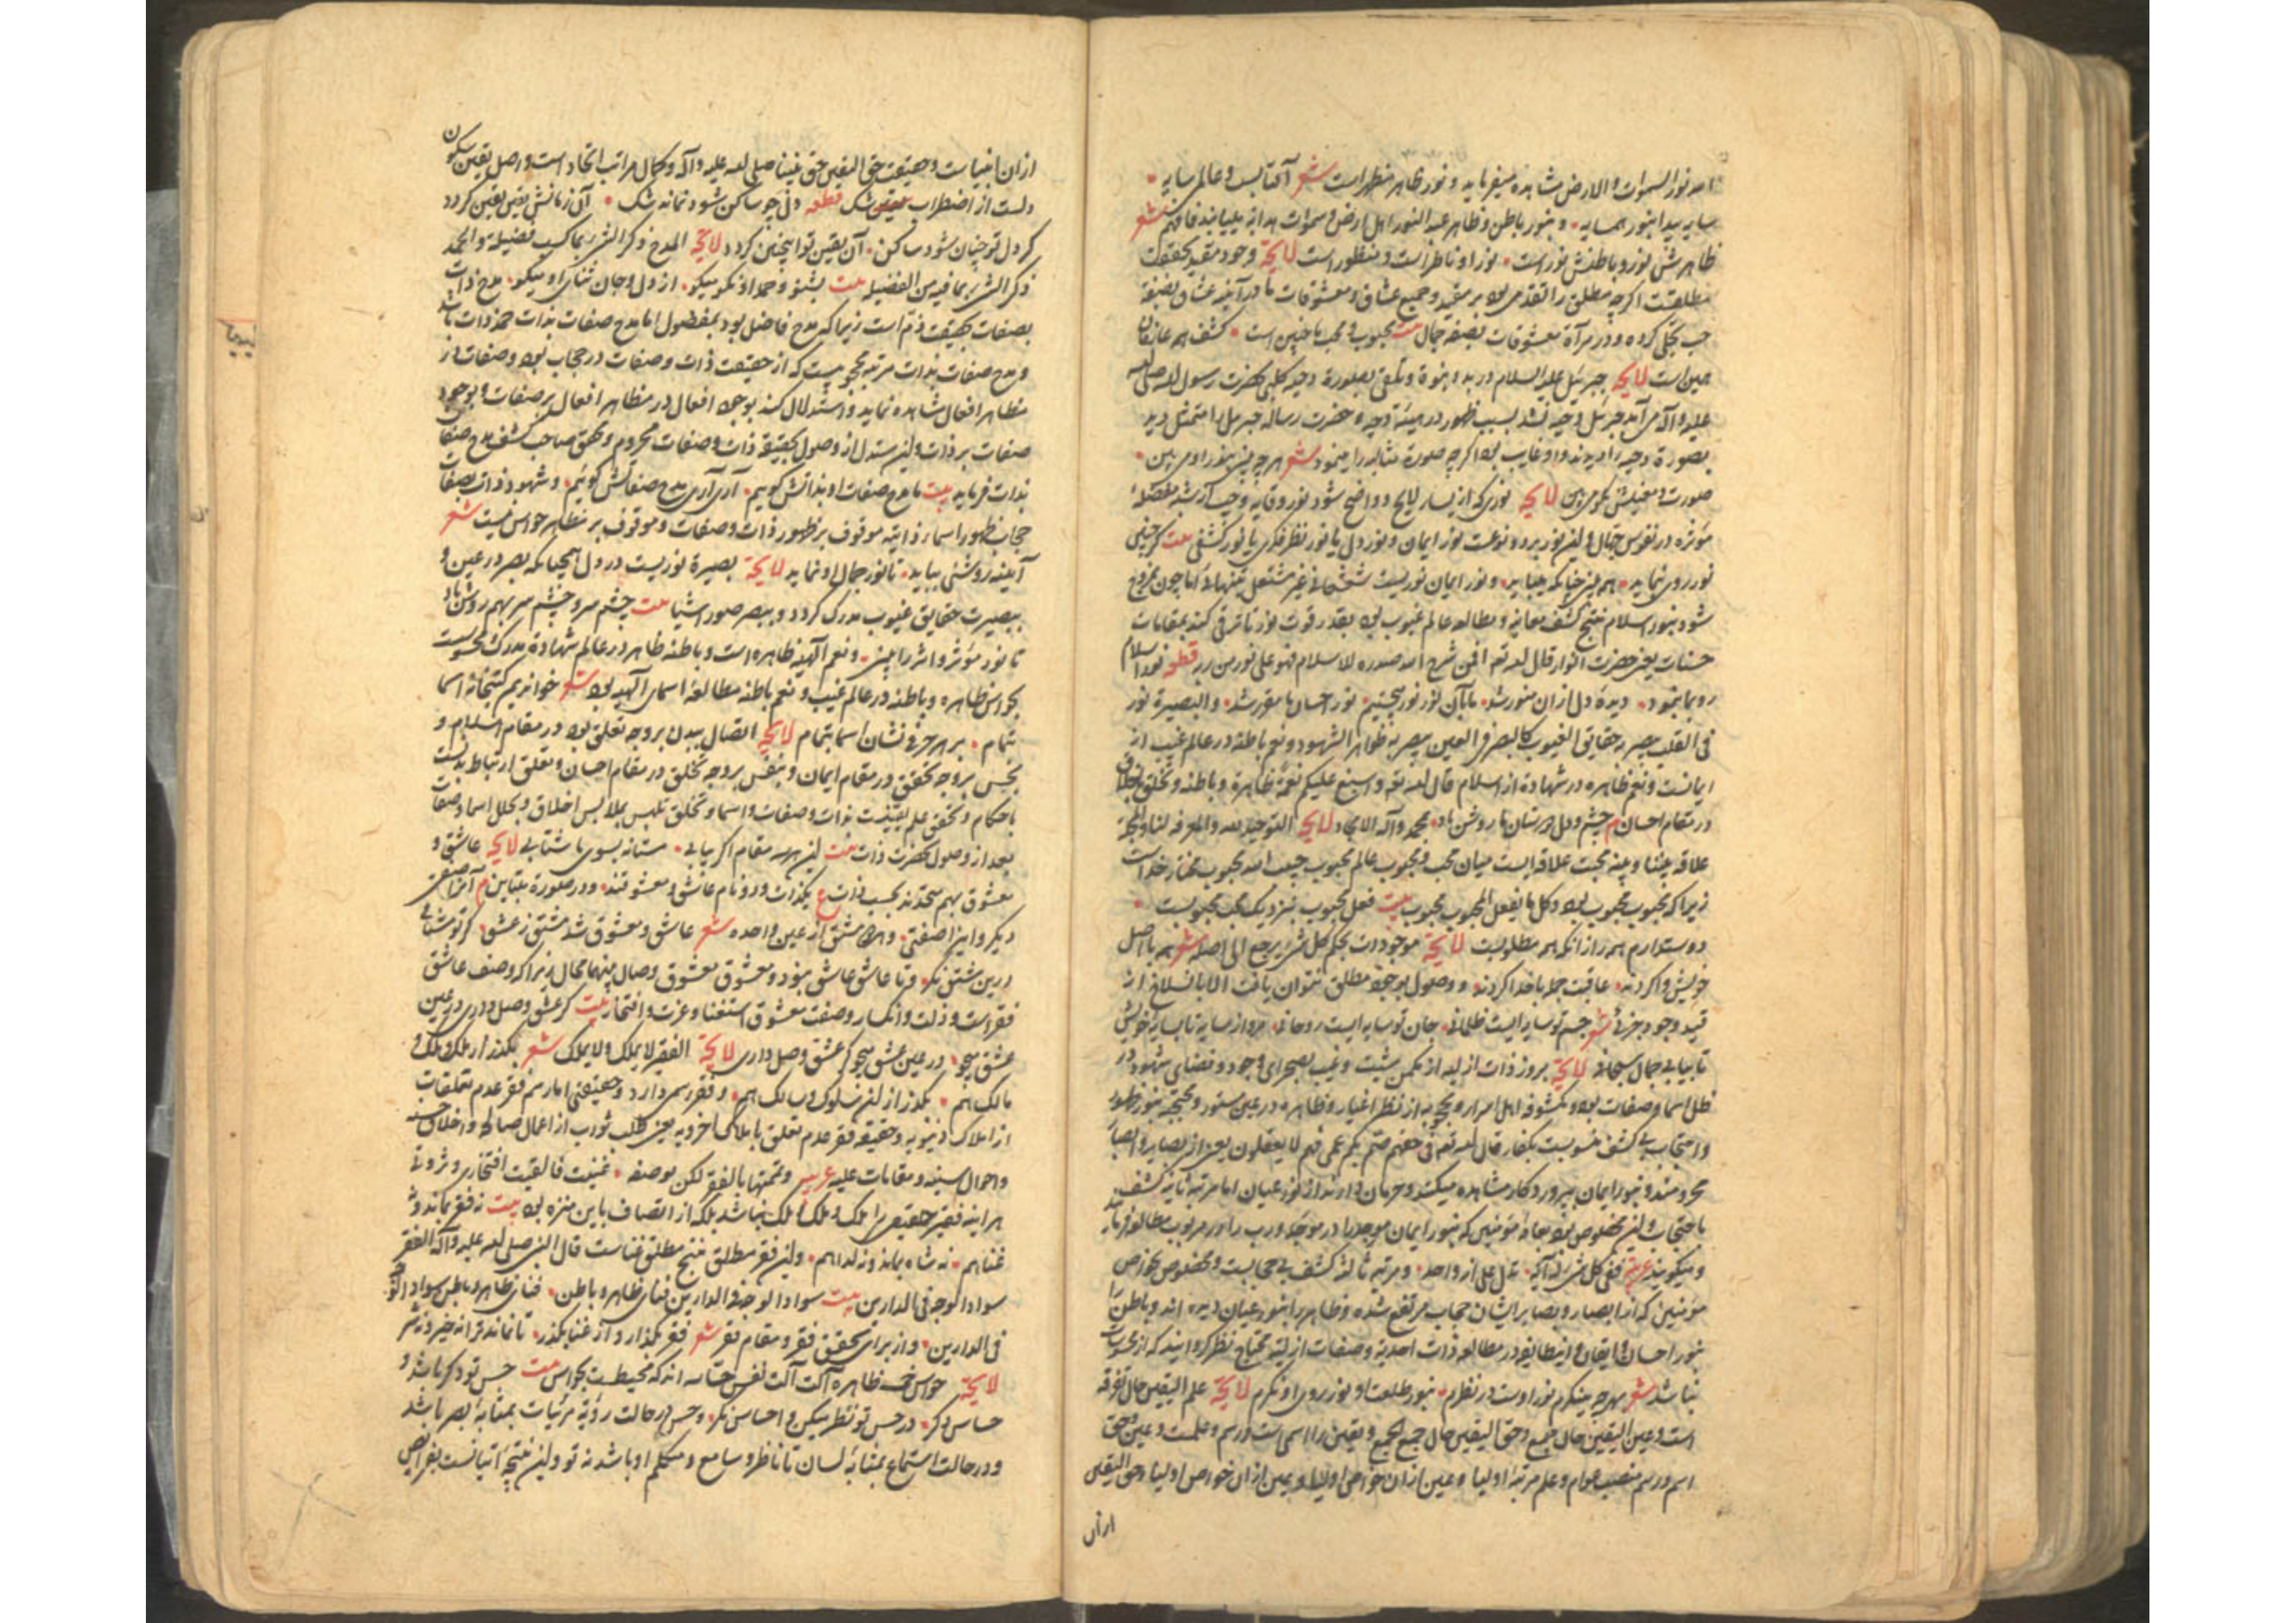 الله نور السموات والارض مشاهده میفرماید و نور ظاهر مظهر است شعر آفتابیست و عالمی سایه
سایه پیدا بنور همسایه و بنور باطن و ظاهر عبد النور اهل ارض و سموات هدایه بیابند فافهم شعر
ظاهرش نور و باطنش نور است نور او ناظر است و منظور است لایحة وجود مقید بحقیقت
مطلقست اگرچه مطلق را تقدمی بود بر مقید و جمیع عشاق و معشوقات را در آینه عشاق بصفة
حب تجلی کرده و در مرآة معشوقات بصفة جمال بیت محبوب و محب ما چنین است کشف همه عارفان
همین است لایحة جبرئیل علیه السلام در بدو نبوة و تلقی بصورة دحیه کلبی بحضرت رسول الله صلی الله
علیه و آله می آمد جبرئیل دحیه نشد بسبب ظهور در هیئة دحیه و حضرت رساله جبرئیل را متمثل دید
بصورة دحیه را دیدند و او غایب بود اگرچه صورة مثالیه را مینمود شعر هرچه بینی بنور او می بین
صورت و معنیش نکو می بین لایحة نوری که از یسار لایح و واضح شود نور وقایه وجیب آن بشبه مفصله
مؤثره در نفوس جهال و این نور بر دو نوعست نور ایمان و نور دل یا نور نظر فکری یا نور کشفی بیت گر چنین
نور روی نماید هم چنین چنانکه بیاید و نور ایمان نوریست شعشعانی غیر مشتعل بتنهائی اما چون ممزوج
شود بنور اسلام منتج کشف معانی و مطالعه عالم غیوب بود بقدر قوت نور تا ترقی کند بمقامات
حسنات یعنی حضرت انوار قال الله تع افمن شرح الله صدره للاسلام فهو علی نور من ربه قطعه نور اسلام
رو بما بنمود دیدۀ دل از آن منور شد با آن نور نور مجتبی نور احسان ما مقرر شد و البصیرة نور
فی القلب یبصر به حقایق الغیوب کالبصر فی العین یبصر به ظواهر الشهود و نعم باطنه در عالم غیب از
ایمانست و نعم ظاهره در شهادة از اسلام قال الله تع و اسبغ علیکم نعمه ظاهرة و باطنه و تخلق باخلاق
در مقام احسان م چشم و دل دوستان ما روشن باد بمحمد و آله الامجاد لایحة التوحید لله والمعرفه لنا والمحبة
علاقه بیننا و بینه محبت علاقه ایست میان محب و محبوب عالم محبوب حبیب الله محبوب مختار خداست
زیرا که محبوب محبوب بود و کل ما یفعل المحبوب محبوب بیت فعل محبوب نزدیک محب محبوبست
دوستدارم همه را زانکه همه مطلوبست لایحة موجودات بحکم کل شیء یرجع الی اصله شعر همه با اصل
خویش واکردند عاقبت جمله با خدا کردند و وصول بوجود مطلق نتوان یافت الا بانسلاخ از
قید وجود جزئی شعر جسم تو سایه ایست ظلمانی جان تو سایه ایست روحانی پرواز سایه تا بسایه خویش
تا بیابی جمال سبحانی لایحة بروز ذات ازلیه از مکمن مشیت و غیب بصحرای وجود و فضای شهود در
ظلل اسما و صفات بود و مکشوفه اهل اسرار و محجوبه از نظر اغیار و ظاهره در عین ستور و محتجبه بنور ظهور
و احتجاب بی کشف منسوبست بکفار قال الله تع فی حقهم صم بکم عمی فهم لا یعقلون یعنی از بصایر و ابصار
محرومند و بنور ایمان پرورد کار مشاهده میکنند و حرمان دارند از نور عیان اما مرتبه ثانیه کشف
با حجاب و این مخصوص بود بعامۀ مؤمنین که بنور ایمان موجد را در موجد و رب را در مربوب مطالعه نمایند
و میگویند عربیة ففی کل شیء له آیة تدل علی انه واحد و مرتبه ثالثه کشف بی حجابست و مخصوص بخواص
مؤمنین که از ابصار و بصایر ایشان حجاب مرتفع شده و ظاهر را بنور عیان دیده اند و باطن را
بنور احسان و ایقان و این طایفه در مطالعه ذات احدیة و صفات ازلیه محتاج نظر کردن نیند که از محرومان
نباشد شعر بهرچه مینگرم نور اوست در نظرم بنور طلعت او نور روی او نگرم لایحة علم الیقین حال تفرقه
است و عین الیقین حال جمع و حق الیقین حال جمع الجمع و یقین را اسمی است و رسم و علمست و عین و حق
اسم و رسم منصب عوام و علم مرتبۀ اولیا و عین از آن خواص اولیا و عین از آن خواص اولیا و حق الیقین
از آن
از آن انبیاست و حقیقت حق الیقین حق نبینا صلی الله علیه و آله و کمال مراتب اتحاد است و اصل یقین سکون
دلست از اضطراب شک قطعه دلی چو ساکن شود نماند شک آن زمانش یقین یقین گردد
گر دل تو چنان شود ساکن آن یقین تو اینچنین گردد لایحة المدح ذکر الشیء بما کسب فضیلة و الحمد
ذکر الشیء بما فیه من الفضیله بیت بشنو و حمد او نکو میگو از دل و جان ثنای او میگو مدح ذات
بصفات بحقیقت ذم است زیرا که مدح فاضل بود بمفضول اما مدح صفات بذات حمد ذات باشد
و مدح صفات بذات مرتبه محجوبیست که از حقیقت ذات و صفات در حجاب بود و صفات در
مظاهر افعال مشاهده نماید و استدلال کند بوجود افعال در مظاهر افعال بر صفات و بوجود
صفات بر ذات و این مستدل از وصول بحقیقة ذات و صفات محروم و محقق صاحب کشف مدح صفات
بذات فرماید بیت ما مدح صفات او بذاتش گوییم آری آری مدح صفاتش گوییم و شهود ذات بصفات
حجاب ظهور اسمای ذاتیه موقوف بر ظهور ذات و صفات و موقوف بر مظاهر حواس نیست شعر
آینه روشنی بیاید تا نور جمال او نماید لایحة بصیرة نوریست در دل همچنانکه بصر در عین و
ببصیرت حقایق غیوب مدرک گردد و ببصر صور اشیا بیت چشم سر و چشم سر بهم روشن باد
تا نور مؤثر و اثر را بیند و نعم الهیه ظاهره است و باطنه ظاهر در عالم شهادة مدرک محسوسست
بحواس ظاهره و باطنه در عالم غیب و نعم باطنه مطالعۀ اسمای الهیه بود شعر خوانده ایم کتبخانۀ اسما
تمام بر هر حرفی نشان اسما بتمام لایحة اتصال ببدن بر وجه تعلق بود در مقام اسلام و
بحس بر وجه تحقق در مقام ایمان و بنفس بر وجه تخلق در مقام احسان و تعلق ارتباط بدنست
باحکام و تحقق علم یقینست بذات و صفات و اسما و تخلق تلبس بملابس اخلاق و بحلل اسما و صفات
بعد از وصول بحضرت ذات بیت این هر سه مقام اگر بیابی مستانه بسوی ما شتابی لایحة عاشق و
معشوق بهم متحدند بحسب ذات ع یکذات و دو نام عاشق و معشوقند و در صورة متباین م آنرا صفتی
دیگر و اینرا صفتی و هر دو مشتق از عین واحده شعر عاشق و معشوق شد مشتق ز عشق گر تو مشتاقی
درین مشتق نگر و تا عاشق عاشق بود و معشوق معشوق وصال بینهما محال زیرا که وصف عاشق
فقر است و ذلت و انکسار و صفت معشوق استغنا و عزت و افتخار بیت گر عشق وصل داری در عین
عشق میجو در عین عشق میجو گر عشق وصل داری لایحة الفقیر لا یملک و لا یملک شعر بگذر از ملک و ملک و
مالک هم بگذر از این سلوک و سالک هم و فقر رسمی دارد و حقیقتی اما رسم فقر عدم تعلقات
از املاک دنیویه و حقیقة فقر عدم تعلق باملاک اخرویه یعنی طلب ثواب از اعمال صالحه و اخلاق حسنه
و احوال سنیه و مقامات علیه عربیه و تمتهنا بالفقر لکن بوصفه غنیت فالقیت افتخاری و ثروتی
هر آینه فقیر حقیقی را ملک و ملک و ملک نباشد بلکه از اتصاف باین منزه بود بیت نه فقر بماند و نه
غنا هم نه شاه بماند و نه گدا هم و این فقر مطلق منتج مطلق غناست قال النبی صلی الله علیه و آله الفقر
سواد الوجه فی الدارین بیت سواد الوجه فی الدارین فنای ظاهر و باطن فنای ظاهر و باطن سواد الوجه
فی الدارین و از برای تحقق فقر و مقام فقر شعر فقر بگذار و از غنا بگذر تا نماند ترا نه خیر و نه شر
لایحة حواس خمسه ظاهره آلت آلت نفس حساسه اند که محیطست بحواس بیت حس تو دگر باشد و
حساس دگر در حس تو نظر میکن و احساس نگر و حس در حالت رؤیة مرئیات بمثابۀ بصر باشد
و در حالت استماع بمثابۀ لسان تا ناظر و سامع و متکلم او باشد نه تو و این نتیجۀ اتیانست بفرایض